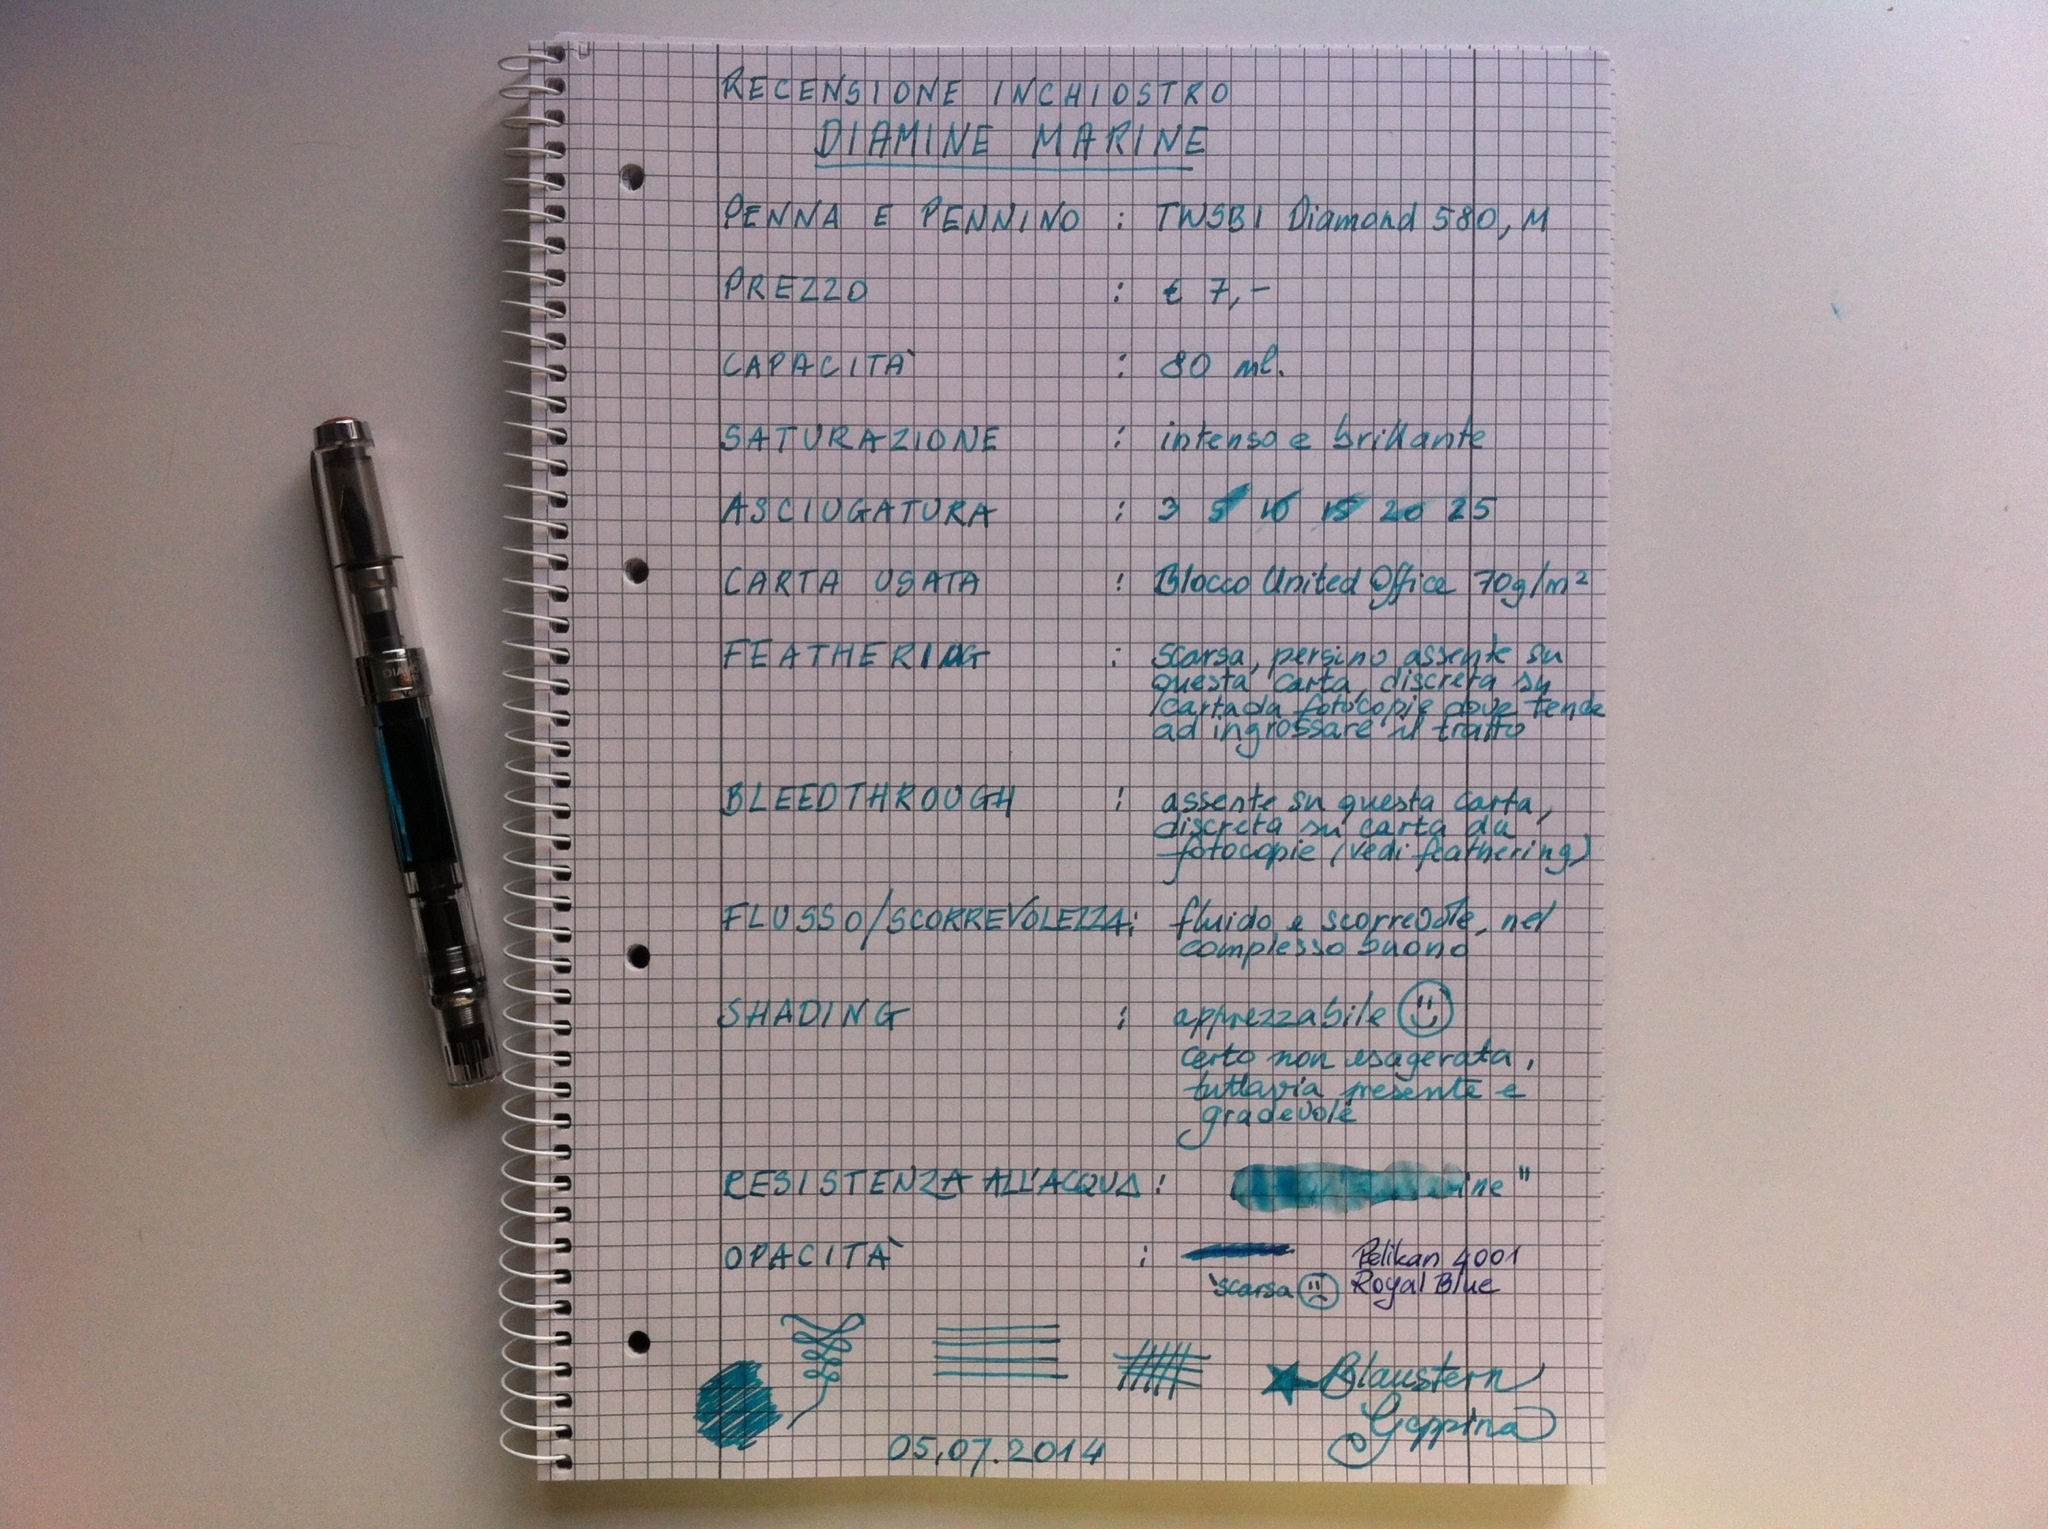 RECENSIONE INCHIOSTRO
DIAMINE MARINE
PENNA E PENNINO : TWSBI Diamond 580, M
PREZZO : € 7,-
CAPACITÀ : 80 ml.
SATURAZIONE : intenso e brillante
ASCIUGATURA : 3 5 10 15 20 25
CARTA USATA : Blocco United Office 70g/m²
FEATHERING : scarsa, persino assente su
questa carta, discreta su
carta da fotocopie dove tende
ad ingrossare il tratto
BLEEDTHROUGH : assente su questa carta,
discreta su carta da
fotocopie (vedi feathering)
FLUSSO/SCORREVOLEZZA: fluido e scorrevole, nel
complesso buono
SHADING : apprezzabile
certo non esagerata,
tuttavia presente e
gradevole
RESISTENZA ALL'ACQUA : ine"
OPACITÀ : Pelikan 4001
scarsa Royal Blue
Blaustern
Geppina
05.07.2014